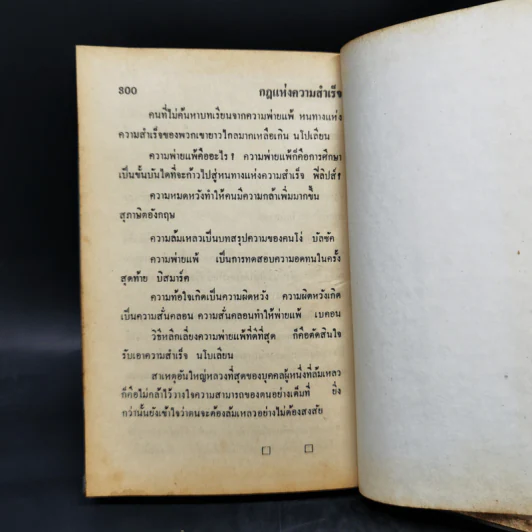 300 กฎแห่งความสำเร็จ
คนที่ไม่ค้นหาบทเรียนจากความพ่ายแพ้ หนทางแห่ง
ความสำเร็จของพวกเขายาวไกลมากเหลือเกิน นโปเลียน
ความพ่ายแพ้คืออะไร? ความพ่ายแพ้ก็คือการศึกษา
เป็นขั้นบันใดที่จะก้าวไปสู่หนทางแห่งความสำเร็จ ฟิลิปส์?
ความหมดหวังทำให้คนมีความกล้าเพิ่มมากขึ้น
สุภาษิตอังกฤษ
ความล้มเหลวเป็นบทสรุปความของคนโง่ บัลซัค
ความพ่ายแพ้ เป็นการทดสอบความอดทนในครั้ง
สุดท้าย บิสมาร์ค
ความท้อใจเกิดเป็นความผิดหวัง ความผิดหวังเกิด
เป็นความสั่นคลอน ความสั่นคลอนทำให้พ่ายแพ้ เบคอน
วิธีหลีกเลี่ยงความพ่ายแพ้ที่ดีที่สุด ก็คือตัดสินใจ
รับเอาความสำเร็จ นโปเลียน
สาเหตุอันใหญ่หลวงที่สุดของบุคคลผู้หนึ่งที่ล้มเหลว
ก็คือไม่กล้าไว้วางใจความสามารถของตนอย่างเต็มที่ ยิ่ง
กว่านั้นยังเข้าใจว่าตนจะต้องล้มเหลวอย่างไม่ต้องสงสัย